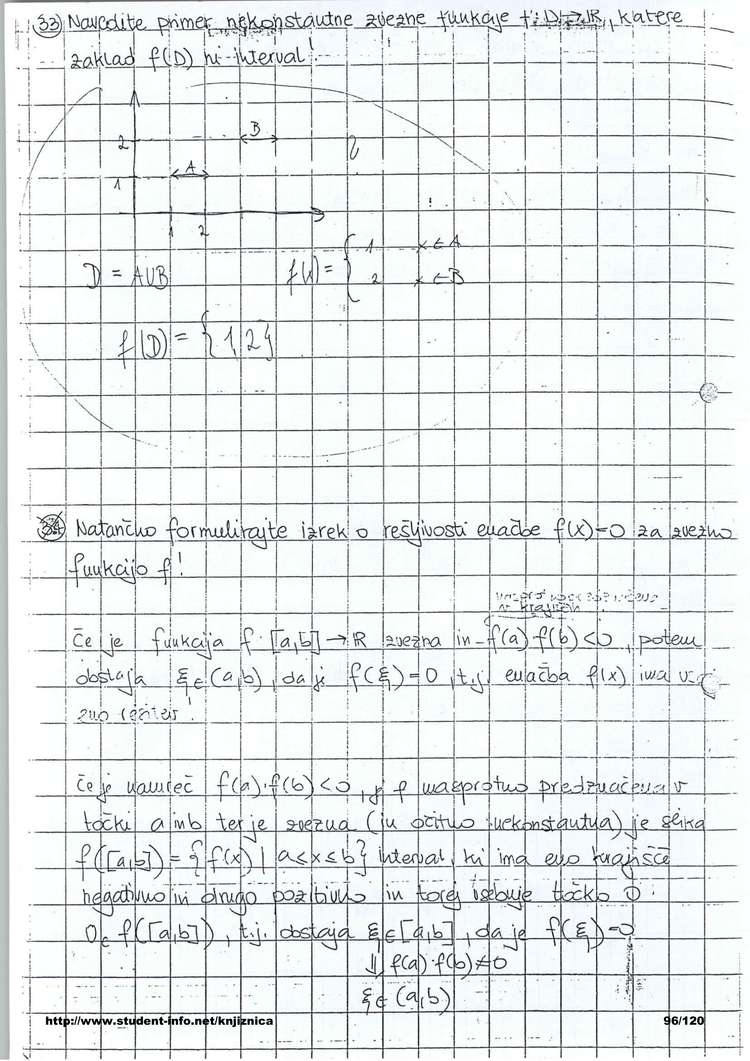 33 Navedite primer nekonstantne zvezne funkcije f: D → R, katere
zaklad f(D) ni interval!
2
B
1
A
1 2
D = A∪B
f(x) = { 1 x ∈ A
2 x ∈ B
f(D) = {1,2}
34 Natančno formulirajte izrek o rešljivosti enačbe f(x)=0 za zvezno
funkcijo f!
v krajiščih
Če je funkcija f: [a,b] → R zvezna in f(a)·f(b)<0, potem
obstaja ξ∈(a,b), da je f(ξ)=0, t.j. enačba f(x) ima vsaj
eno rešitev!
Če je namreč f(a)·f(b)<0, je f nasprotno predznačena v
točki a in b ter je zvezna (in očitno nekonstantna) je slika
f([a,b]) = {f(x) | a≤x≤b} interval, ki ima eno krajišče
negativno in drugo pozitivno in torej vsebuje točko 0.
0∈ f([a,b]), t.j. obstaja ξ∈[a,b], da je f(ξ)=0
⇓ f(a)·f(b)≠0
ξ∈(a,b)
http://www.student-info.net/knjiznica 96/120